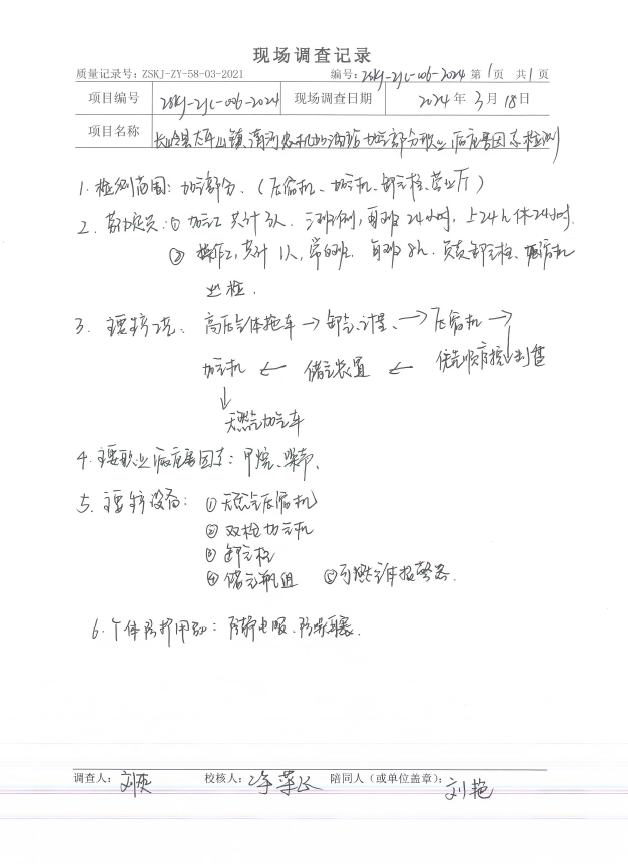 现场调查记录
质量记录号：ZSKJ-ZY-58-03-2021 编号：ZSKJ-ZJC-006-2024 第1页 共1页
项目编号 ZSKJ-ZJC-006-2024 现场调查日期 2024年3月18日
项目名称 长岭县太平山镇 农机加油站加气部分职业病危害因素检测
1. 检测范围：加气部分。（压缩机、加气机、卸气柱、营业厅）
2. 劳动定员：①加气工 共计3人，三班制，每班24小时，上24h休24小时.
② 操作工，共计1人，常白班. 每班8h. 负责卸气柱、压缩机
巡检.
3. 主要工艺、高压气体拖车→卸气、计量、→压缩机→
加气机 ← 储气装置 ← 优先顺序控制盘
↓
天然气加气车
4. 主要职业病危害因素：甲烷、噪声、
5. 主要设备：①天然气压缩机
②双枪加气机
③卸气柱
④储气瓶组 ⑤可燃气体报警器.
6. 个体防护用品：防静电服、防噪耳塞.
调查人： 校核人： 陪同人（或单位盖章）：刘艳